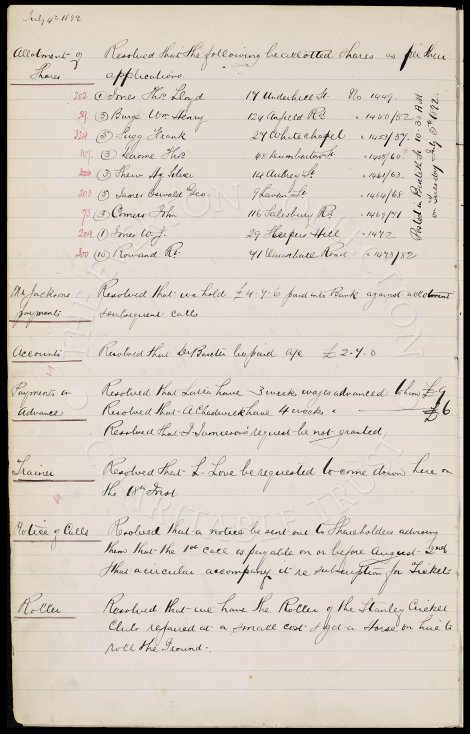 July 4th 1892
Allotment of Shares
Resolved that the following be allotted Shares as per their
applications
202 (1) Jones Thos Lloyd 17 Underhill St. No 1449
(3) Burge Wm Henry 124 Anfield Rd " 1450/52
324 (5) Sugg Frank 27 Whitechapel " 1453/57
107 (3) Jerome Thos 48 Dumbarton St " 1458/60
(3) Shaw 114 Aubrey St " 1461/63
203 (5) James Oswald Geo. 9 Luvan St " 1464/68
73 (3) Comius John 116 Salisbury Rd " 1469/71
204 (1) Jones W. J. 29 Hill " 1472
300 (10) Rowand Rt. 71 Vauxhall Road " 1473/82
Posted in Bootle at 10.30 A.M
on Tuesday July 5th 1892.
Mr Jacksons payments
Resolved that we hold £4-7-6 paid into Bank against allotment
& subsequent calls
Accounts
Resolved that Dr Baxter be paid a/c £2-7-0
Payments in Advance
Resolved that Latta have 3 weeks wages advanced to him £9
Resolved that A Chadwick have 4 weeks " £6
Resolved that J Jamieson's request be not granted
Trainer
Resolved that L. Love be requested to come down here on
the 18th Inst
Notice of Calls
Resolved that a notice be sent out to Shareholders advising
them that the 1st call is payable on or before August 2nd
& that a circular accompany it re subscription for Ticket
Roller
Resolved that we have the Roller of the Stanley Cricket
Club repaired at a small cost & get a Horse on hire to
roll the Ground.